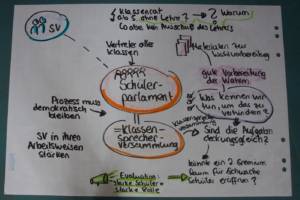 Klassenrat
als S. ohne Lehrer? → ? Warum
bei Ausschluss des Lehrers
SV
Vertreter aller
Klassen
Materialien zur
Wahlvorbereitung
Schüler-
parlament
gute Vorbereitung
der Wahlen
Prozess muss
demokratisch
bleiben
Was können wir
tun, um das zu
verhindern?
=Klassen-
sprecher-
versammlung
SV in ihren
Arbeitsweisen
stärken
Sind die Aufgaben
deckungsgleich?
könnte ein 2. Gremium
Raum für schwache
Schüler eröffnen?
Evaluation:
starke Schüler =
starke Rolle